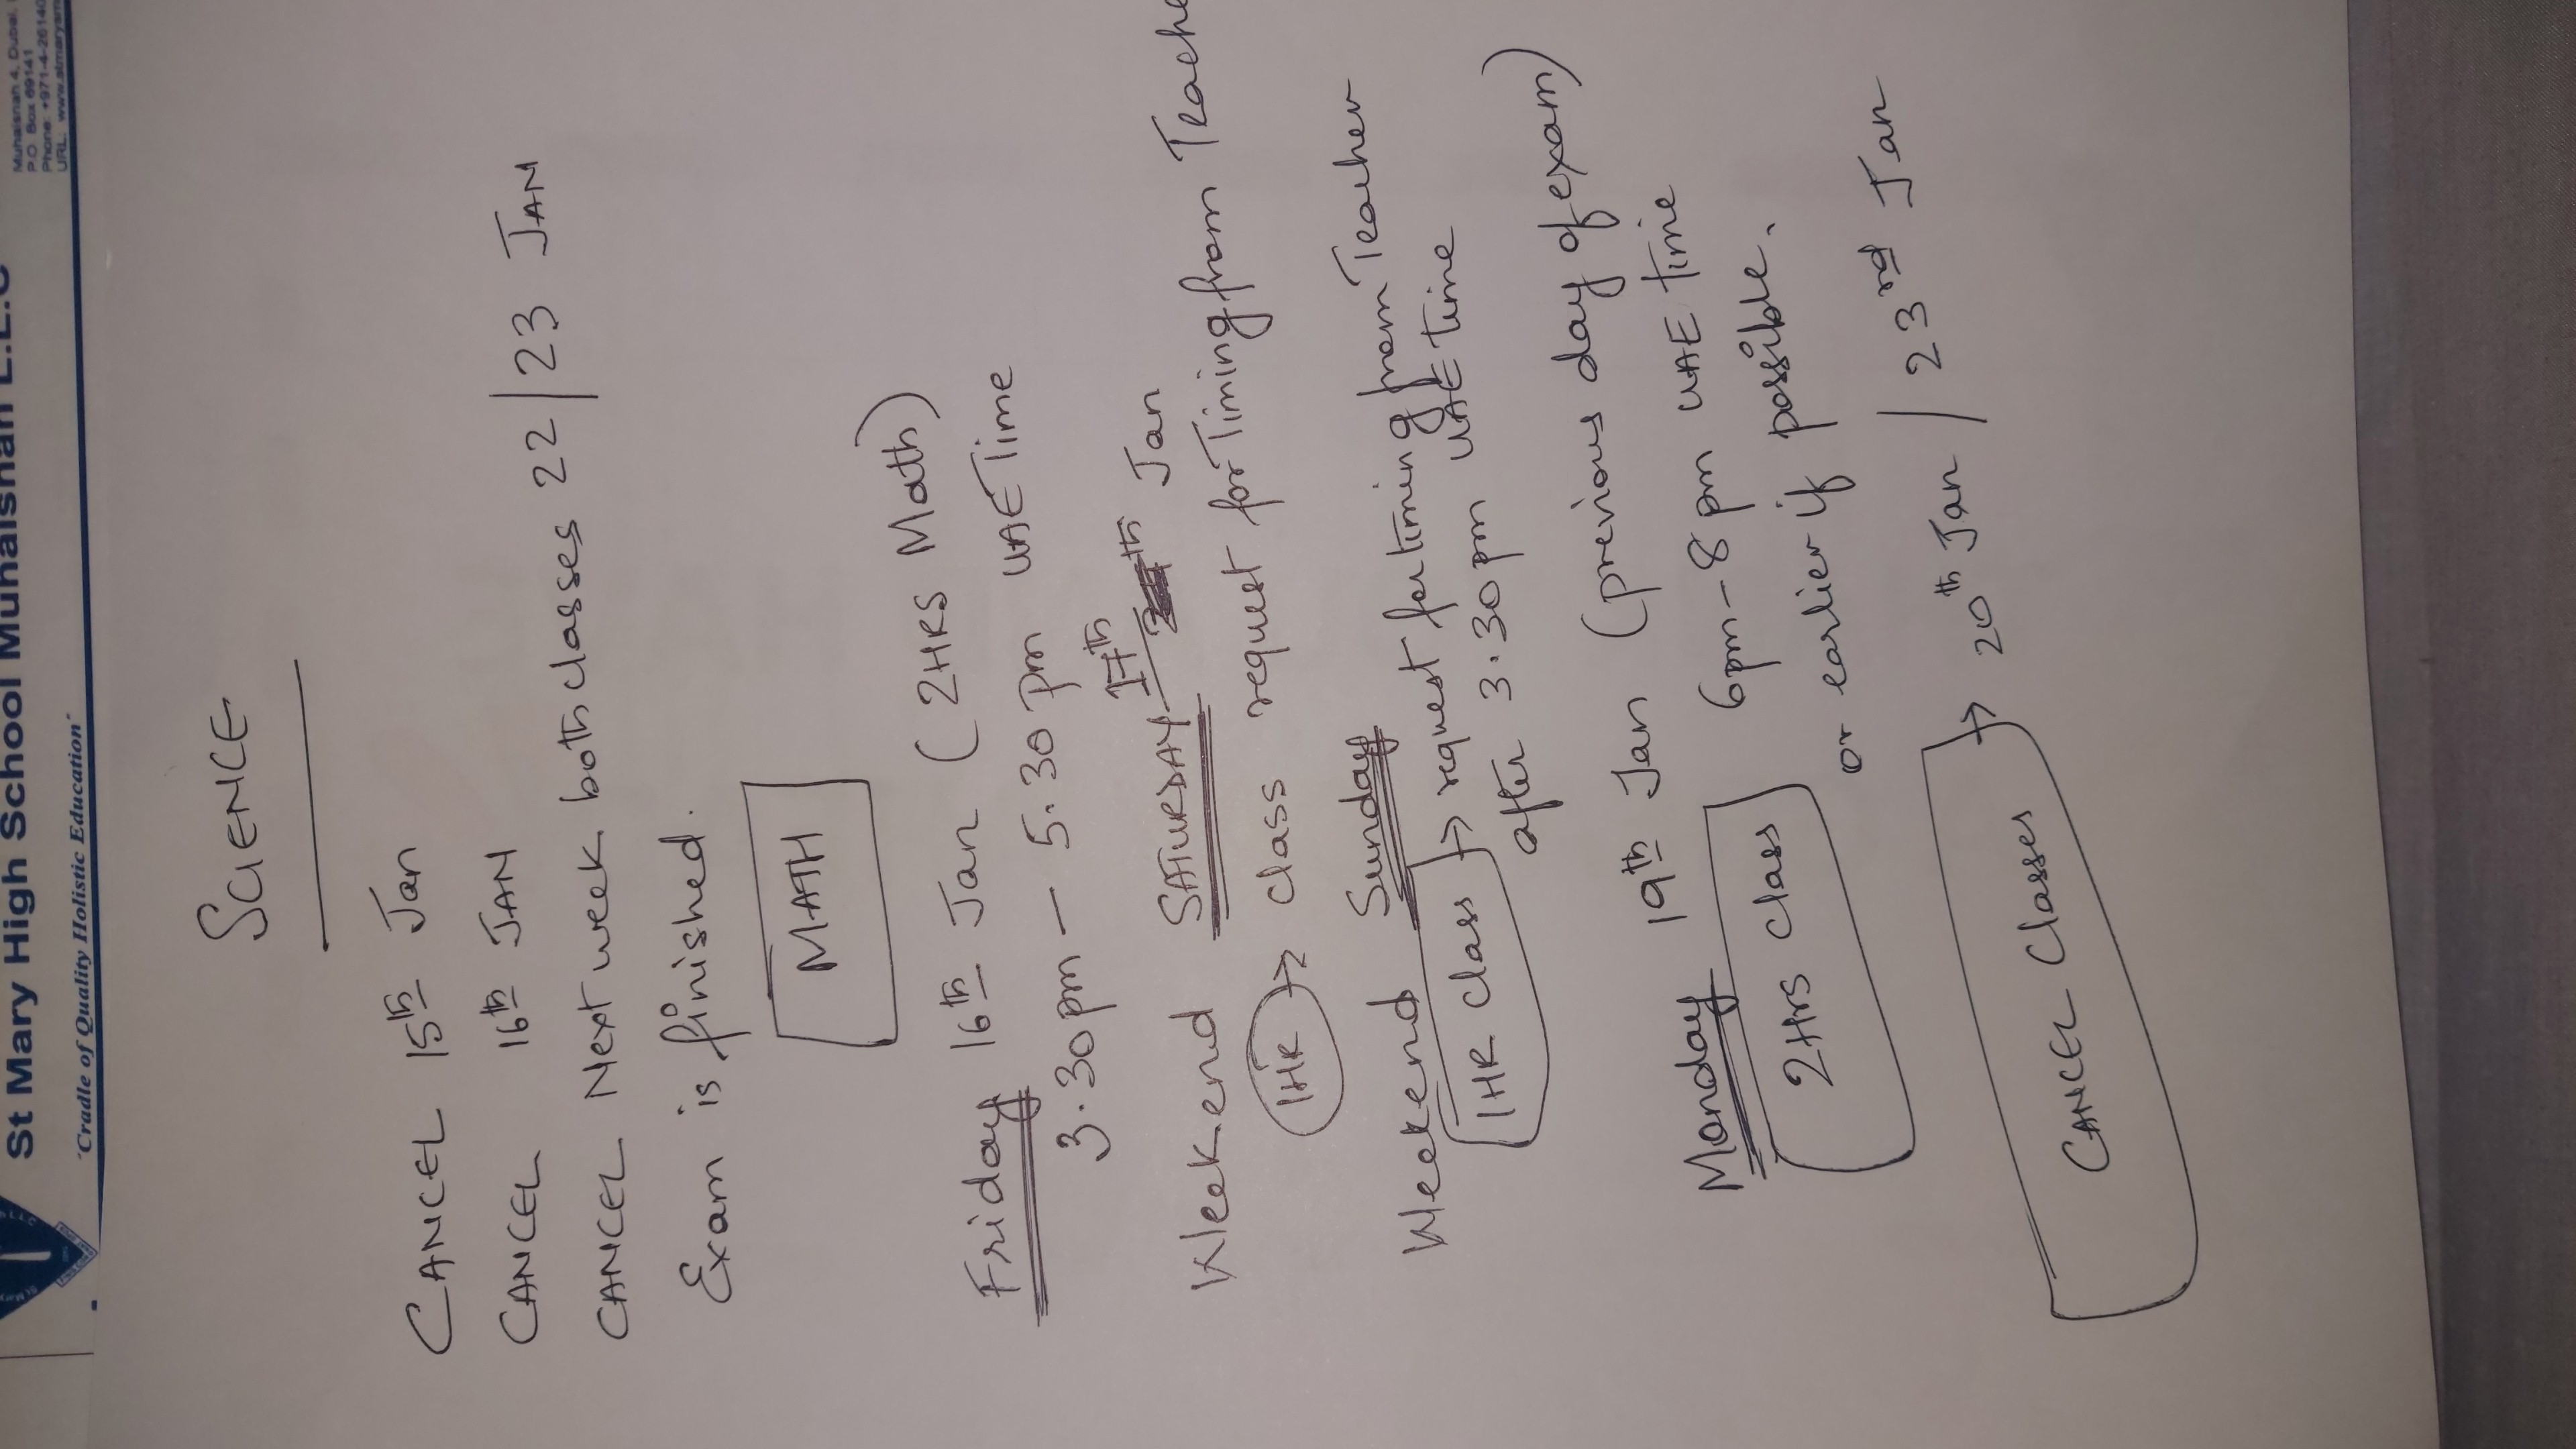 St Mary High School Muhaisnah L.L.C
"Cradle of Quality Holistic Education"
Muhaisnah 4, Dubai,
P.O. Box 69141
Phone: +971-4-26140
URL: www.stmarysm
SCIENCE
CANCEL 15th Jan
CANCEL 16th JAN
CANCEL Next week both classes 22/23 JAN
Exam is finished.
MATH
Friday 16th Jan (2HRS Math)
3.30pm - 5.30pm UAE Time
17th
Weekend SATURDAY Jan
1HR → class request for Timing from Teache
Weekend Sunday
1HR class → request for timing from Teacher
after 3.30pm UAE time
Monday 19th Jan (previous day of exam)
2Hrs class 6pm-8pm UAE time
or earlier if possible.
CANCEL Classes → 20th Jan / 23rd Jan